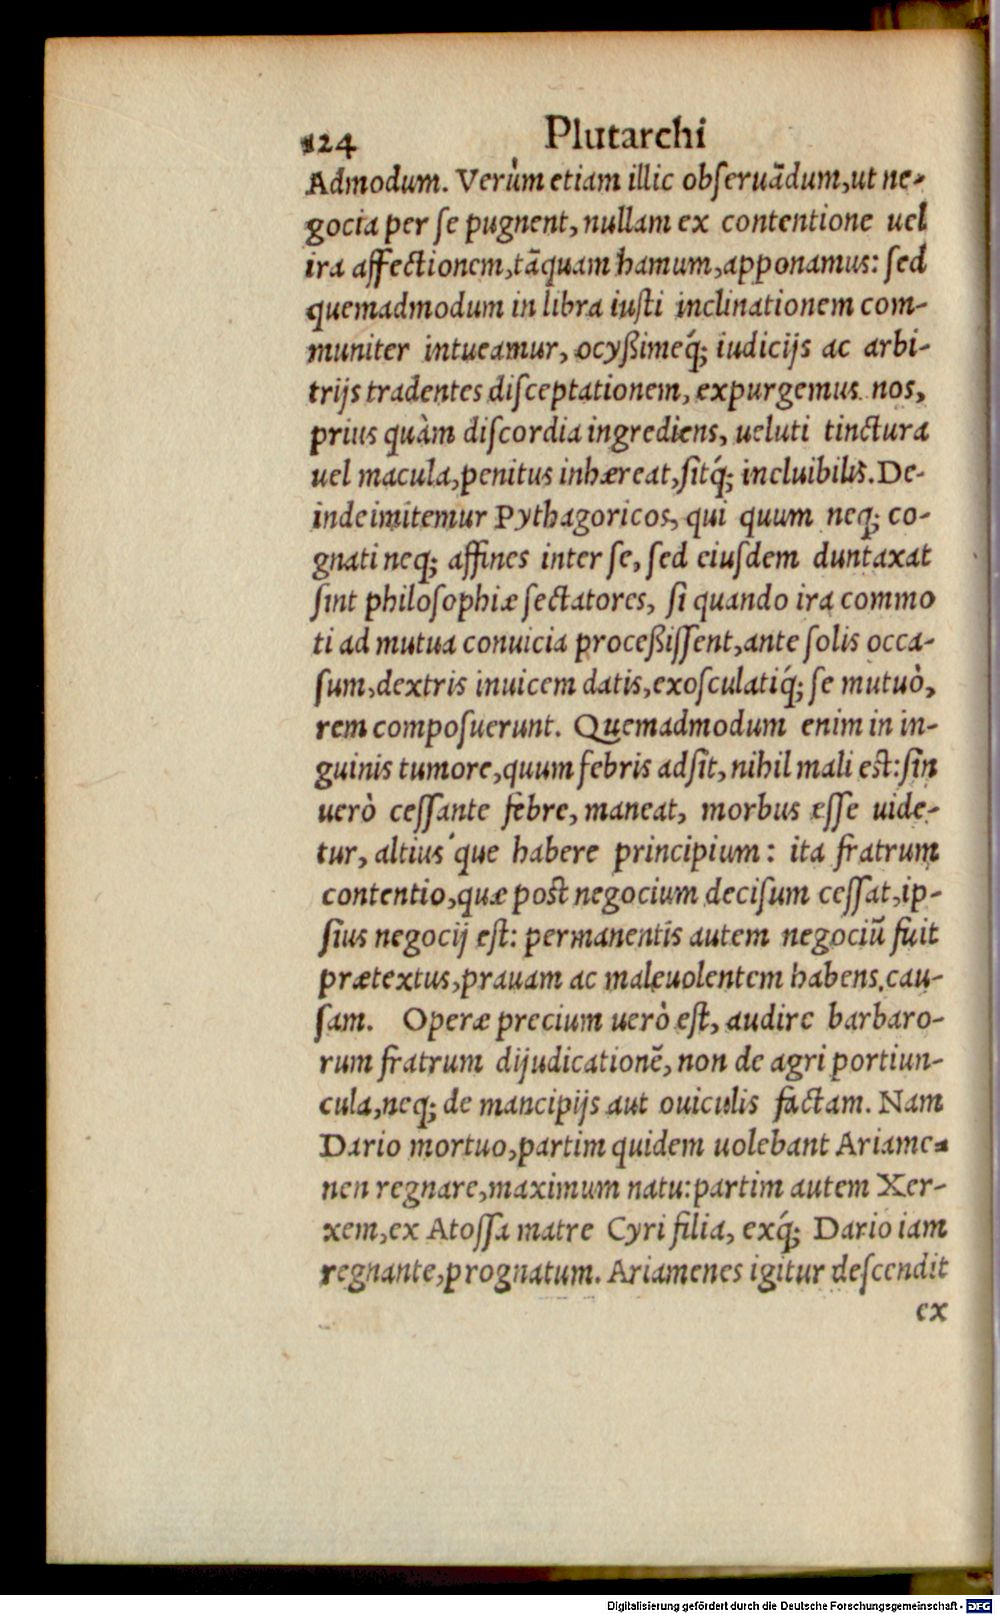 124 Plutarchi
Admodum. Verùm etiam illic obſeruãdum,ut ne-
gocia per ſe pugnent, nullam ex contentione uel
ira affectionem,tãquam hamum,apponamus: ſed
quemadmodum in libra iuſti inclinationem com-
muniter intueamur, ocyßimeq́; iudicijs ac arbi-
trijs tradentes diſceptationem, expurgemus nos,
prius quàm diſcordia ingrediens, ueluti tinctura
uel macula,penitus inhæreat,ſitq́; incluibilis. De-
inde imitemur Pythagoricos, qui quum neq; co-
gnati neq; affines inter ſe, ſed eiuſdem duntaxat
ſint philoſophiæ ſectatores, ſi quando ira commo
ti ad mutua conuicia proceßiſſent,ante ſolis occa-
ſum,dextris inuicem datis,exoſculatiq́; ſe mutuò,
rem compoſuerunt. Quemadmodum enim in in-
guinis tumore,quum febris adſit, nihil mali eſt:ſin
uerò ceſſante febre, maneat, morbus eſſe uide-
tur, altius´que habere principium: ita fratrum
contentio,quæ poſt negocium deciſum ceſſat,ip-
ſius negocij eſt: permanentis autem negociũ fuit
prætextus,prauam ac maleuolentem habens cau-
ſam. Operæ precium uerò eſt, audire barbaro-
rum fratrum dijudicationẽ, non de agri portiun-
cula,neq; de mancipijs aut ouiculis factam. Nam
Dario mortuo,partim quidem uolebant Ariame-
nen regnare,maximum natu: partim autem Xer-
xem,ex Atoſſa matre Cyri filia, exq́; Dario iam
regnante,prognatum. Ariamenes igitur deſcendit
ex
Digitalisierung gefördert durch die Deutsche Forschungsgemeinschaft - DFG